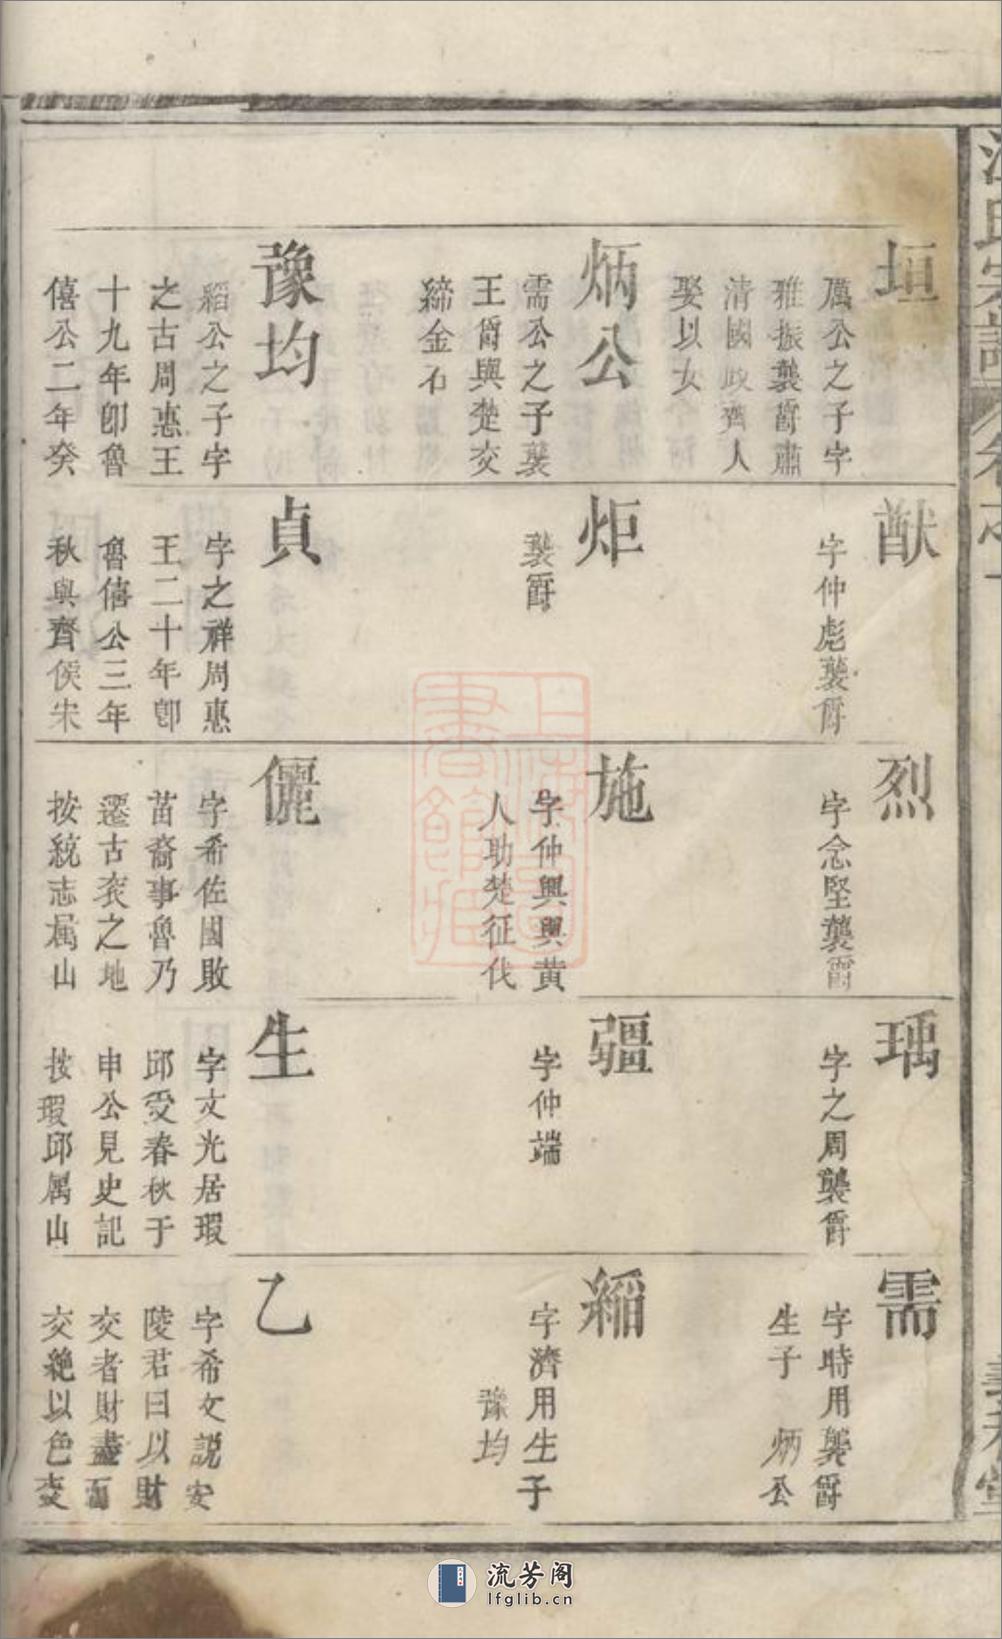 江氏宗譜
卷之一
垣
厲公之子字
雅振襲爵肅
清國政齊人
娶以女
炳公
需公之子襲
王爵與楚交
締金石
豫均
縚公之子字
之古周惠王
十九年卽魯
僖公二年癸
猷
字仲彪襲爵
炬
襲爵
貞
字之祥周惠
王二十年卽
魯僖公三年
秋與齊侯宋
烈
字念堅襲爵
施
字仲興與黄
人助楚征伐
儷
字希佐國敗
苗裔事魯乃
遷古兖之地
按統志属山
瑀
字之周襲爵
疆
字仲端
生
字文光居瑕
邱受春秋于
申公見史記
按瑕邱属山
需
字時用襲爵
生子 炳公
縚
字濟用生子
豫均
乙
字希文説安
陵君曰以財
交者財盡而
交絶以色交
上海圖書館藏
流芳阁
lfglib.cn